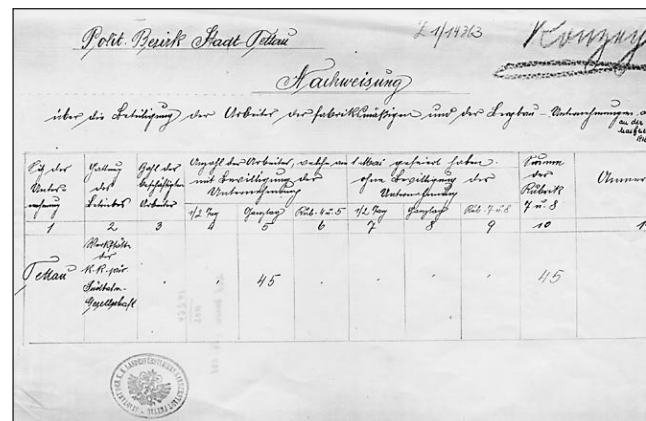 Polit. Bezirk Stadt Pettau
Z 1/14363
Nachweisung
über die Beteiligung der Arbeiter der fabriksmäßigen und der Bergbau-Unternehmungen
an der
Sitz der Unternehmung
Gattung des Betriebes
Zahl der beschäftigten Arbeiter
Anzahl der Arbeiter, welche am 1. Mai gefeiert haben.
mit Bewilligung der Unternehmung
ohne Bewilligung der Unternehmung
Summe der Rubrik 7 u. 8
1/2 Tag Ganztag Rub. 4 u. 5 1/2 Tag Ganztag Rub. 7 u. 8
1 2 3 4 5 6 7 8 9 10
Pettau
Werkstätte der k. k. priv. Südbahn-Gesellschaft
45 45